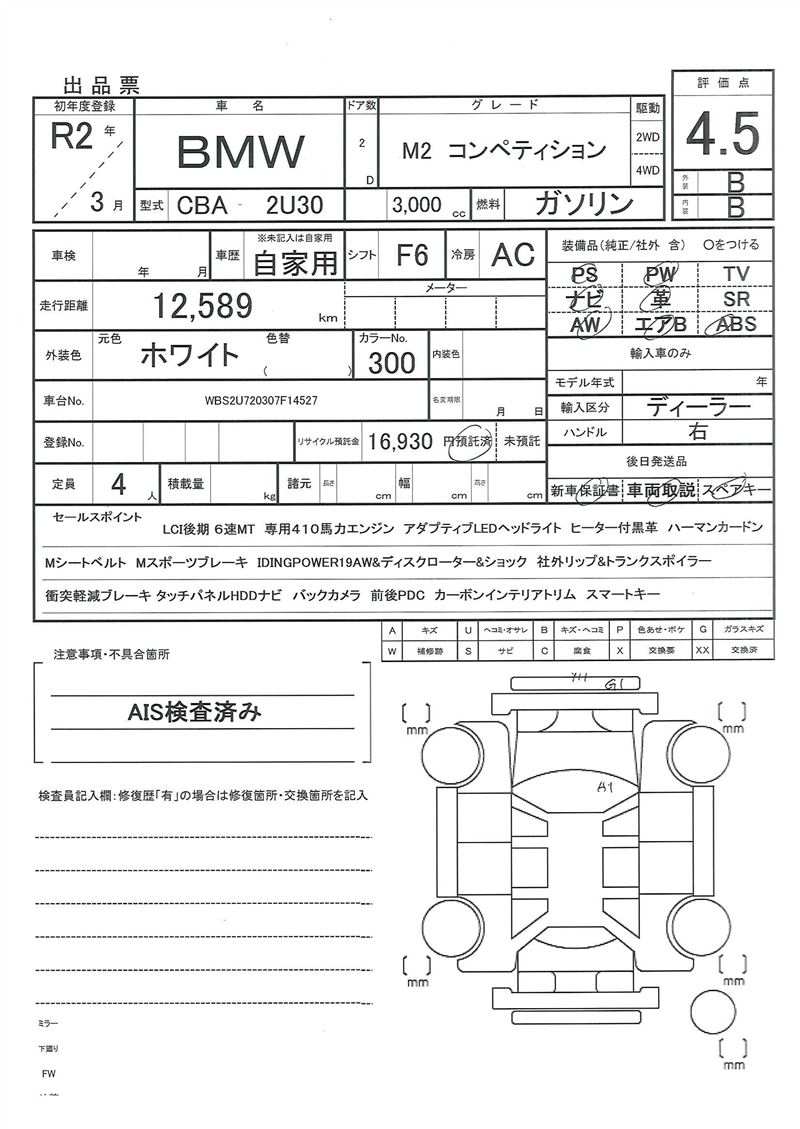 出品票
初年度登録 車 名 ドア数 グレード 駆動 評価点
R2 年 3 月
BMW
2 D
M2 コンペティション
2WD
4WD
4.5
型式 CBA - 2U30 3,000 cc 燃料 ガソリン
外装 B
内装 B
車検 年 月 車歴 ※未記入は自家用 自家用 シフト F6 冷房 AC
装備品(純正/社外 含) 〇をつける
PS PW TV
ナビ 革 SR
AW エアB ABS
走行距離 12,589 km メーター
外装色 元色 ホワイト 色替 ( ) カラーNo. 300 内装色
輸入車のみ
モデル年式 年
車台No. WBS2U720307F14527 名変期限 月 日
輸入区分 ディーラー
ハンドル 右
登録No. リサイクル預託金 16,930 円預託済 未預託
後日発送品
定員 4 人 積載量 kg 諸元 長さ cm 幅 cm 高さ cm
新車保証書 車両取説 スペアキー
セールスポイント
LCI後期 6速MT 専用410馬力エンジン アダプティブLEDヘッドライト ヒーター付黒革 ハーマンカードン
Mシートベルト Mスポーツブレーキ IDINGPOWER19AW&ディスクローター&ショック 社外リップ&トランクスポイラー
衝突軽減ブレーキ タッチパネルHDDナビ バックカメラ 前後PDC カーボンインテリアトリム スマートキー
A キズ U ヘコミ・オサレ B キズ・ヘコミ P 色あせ・ボケ G ガラスキズ
W 補修跡 S サビ C 腐食 X 交換要 XX 交換済
注意事項・不具合箇所
AIS検査済み
検査員記入欄:修復歴「有」の場合は修復箇所・交換箇所を記入
G1
A1
mm
mm
mm
mm
mm
ミラー
下廻り
FW